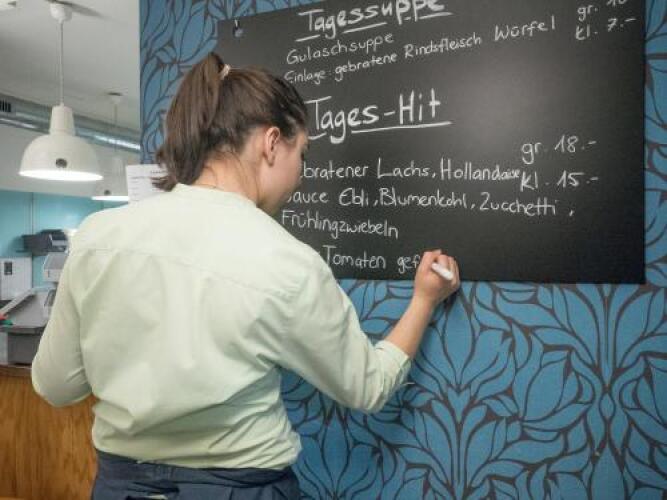 Tagessuppe
Gulaschsuppe gr. 10
Einlage: gebratene Rindsfleisch Würfel kl. 7.-
Tages-Hit
gebratener Lachs, Hollandaise gr. 18.-
Sauce Ebli, Blumenkohl, Zucchetti, kl. 15.-
Frühlingzwiebeln
Tomaten gef